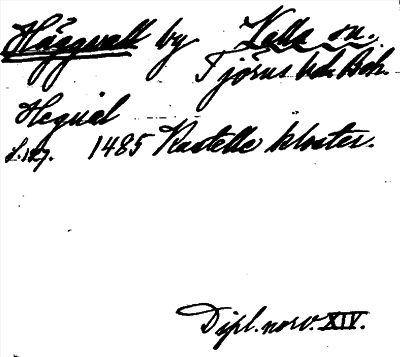 Häggvall by Valla sn.
Tjörns hd. Boh.
Hegval
s. 127. 1485 Kastelle kloster.
Dipl. norv. XIV.